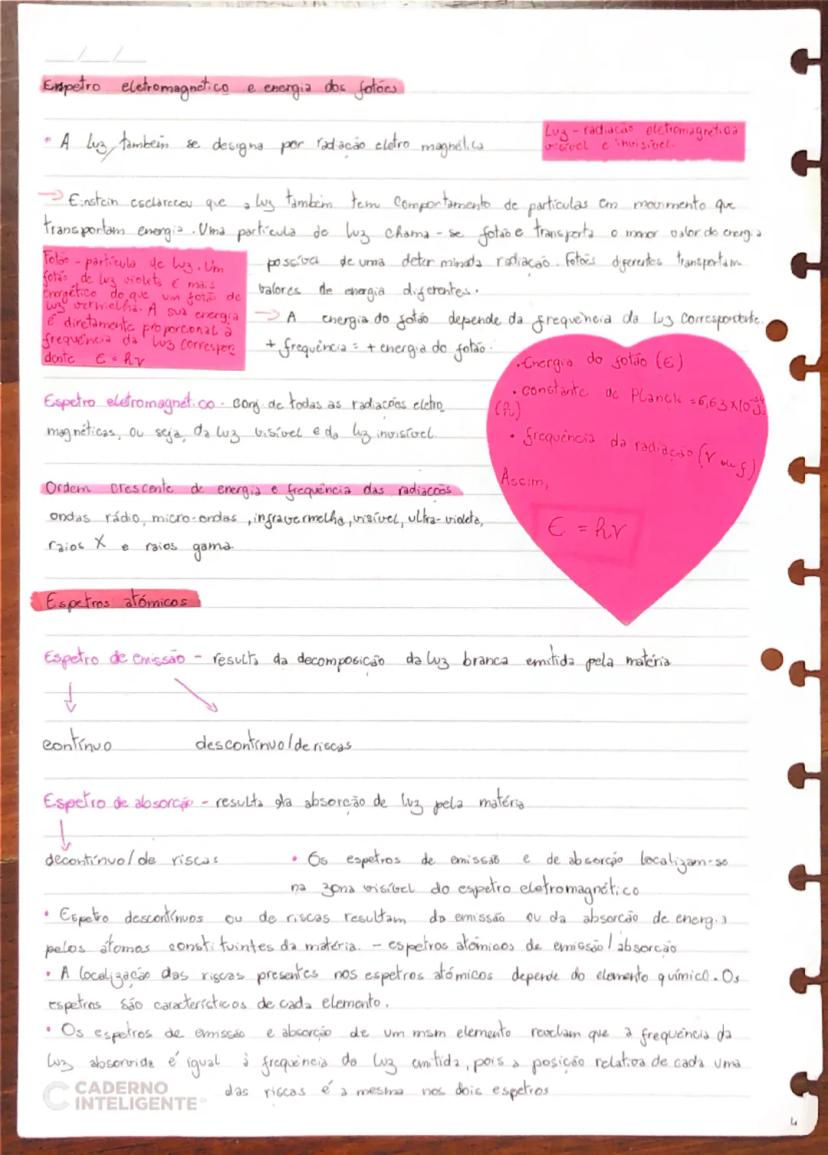 Espetro eletromagnético e energia dos fotões
• A luz, também se designa por radiação eletro magnética
Luz - radiação eletromagnética
visível e invisível.
→ Einstein esclareceu que a luz também tem comportamento de partículas em movimento que
transportam energia. Uma partícula de luz chama-se fotão e transporta o menor valor de energia
possível de uma determinada radiação. Fotões diferentes transportam
valores de energia diferentes.
Fotão - partícula de luz. Um
fotão de luz violeta é mais
energético do que um fotão de
luz vermelha. A sua energia
é diretamente proporcional à
frequência da luz correspon
dente E = hν
→ A energia do fotão depende da frequência da luz correspondente.
+ frequência = + energia do fotão.
• Energia do fotão (E)
• constante de Planck = 6,63 x 10⁻³⁴ J s
(h)
• frequência da radiação (ν ou f)
Assim,
E = hν
Espetro eletromagnético - conj de todas as radiações eletro
magnéticas, ou seja, da luz visível e da luz invisível.
Ordem crescente de energia e frequência das radiações
ondas rádio, micro-ondas, infravermelha, visível, ultra-violeta,
raios X e raios gama.
Espetros atómicos
Espetro de emissão - resulta da decomposição da luz branca emitida pela matéria
↓ ↘
contínuo descontínuo/de riscas
Espetro de absorção - resulta da absorção de luz pela matéria
↓
decontínuo/de riscas
• Os espetros de emissão e de absorção localizam-se
na zona visível do espetro eletromagnético
• Espetro descontínuos ou de riscas resultam da emissão ou da absorção de energia
pelos átomos constituintes da matéria. - espetros atómicos de emissão/absorção
• A localização das riscas presentes nos espetros atómicos depende do elemento químico. Os
espetros são característicos de cada elemento.
• Os espetros de emissão e absorção de um msm elemento revelam que a frequência da
luz absorvida é igual à frequência da luz emitida, pois a posição relativa de cada uma
das riscas é a mesma nos dois espetros
CADERNO
INTELIGENTE
4